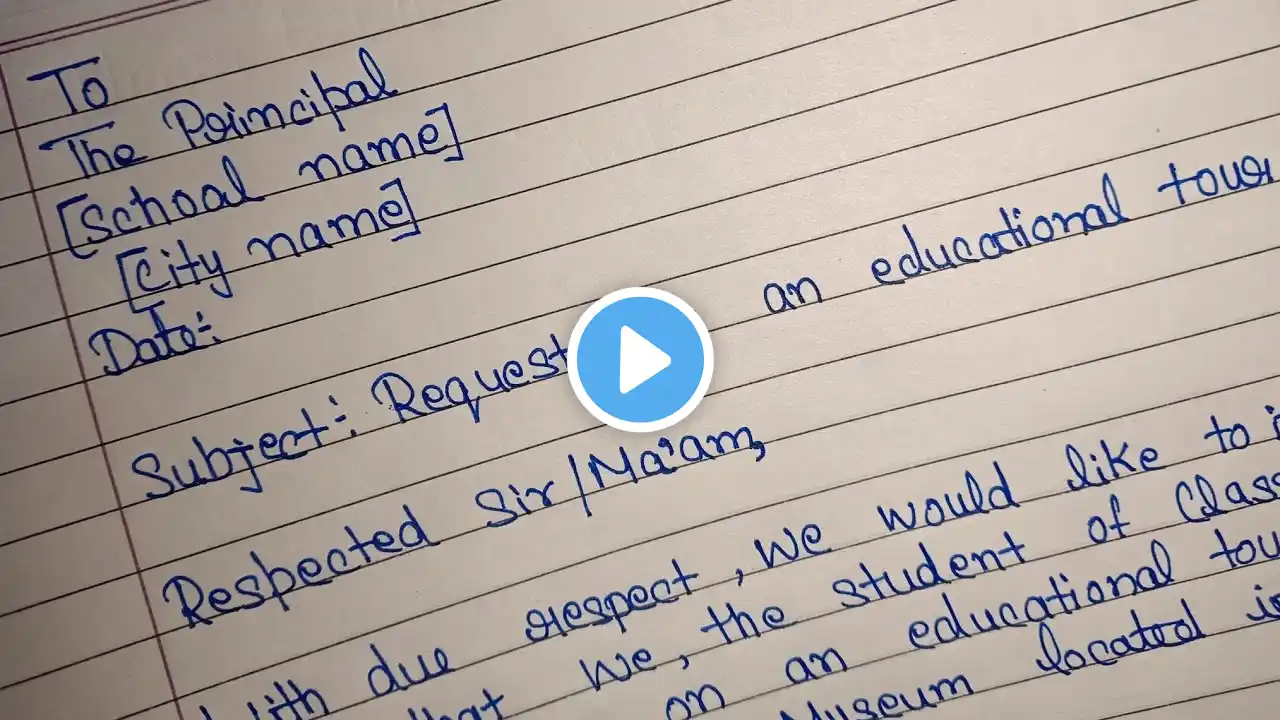 To
The Principal
[School name]
[City name]
Date:
Subject: Request an educational tour
Respected Sir/Ma'am,
With due respect, we would like to
that we, the student of Class
on an educational tou
Museum located